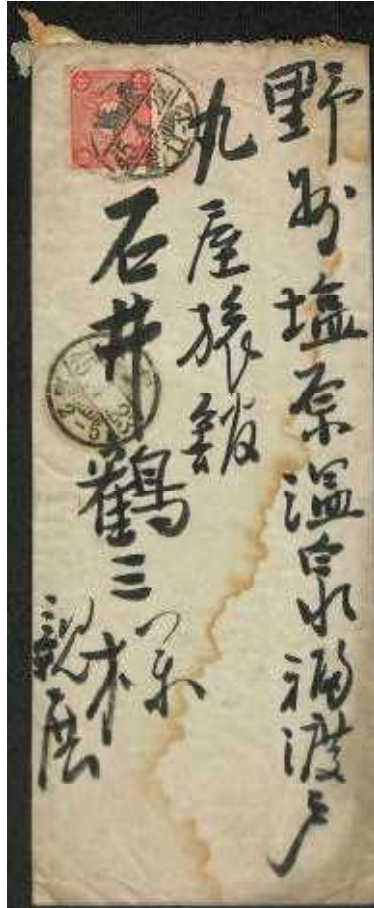 野州塩原温泉福渡戸
丸屋旅館
石井鶴三様
親展